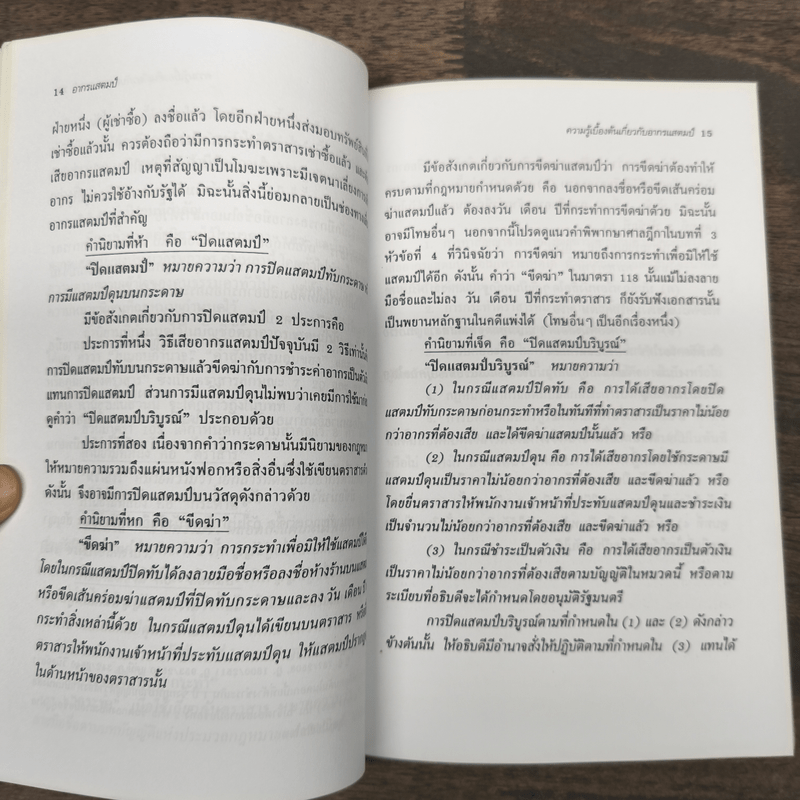 14 อากรแสตมป์
ฝ่ายหนึ่ง (ผู้เช่าซื้อ) ลงชื่อแล้ว โดยอีกฝ่ายหนึ่งส่งมอบทรัพย์สิน
เช่าซื้อแล้วนั้น ควรต้องถือว่ามีการกระทำตราสารเช่าซื้อแล้ว
เสียอากรแสตมป์ เหตุที่สัญญาเป็นโมฆะเพราะมีเจตนาเลี่ยง
อากร ไม่ควรใช้อ้างกับรัฐได้ มิฉะนั้นสิ่งนี้ย่อมกลายเป็นช่องทาง
อากรแสตมป์ที่สำคัญ
คำนิยามที่ห้า คือ “ปิดแสตมป์”
“ปิดแสตมป์” หมายความว่า การปิดแสตมป์ทับกระดาษ
การมีแสตมป์ดุนบนกระดาษ
มีข้อสังเกตเกี่ยวกับการปิดแสตมป์ 2 ประการคือ
ประการที่หนึ่ง วิธีเสียอากรแสตมป์ปัจจุบันมี 2 วิธีเท่านั้น
การปิดแสตมป์ทับบนกระดาษแล้วขีดฆ่ากับการชำระค่าอากรเป็น
แทนการปิดแสตมป์ ส่วนการมีแสตมป์ดุนไม่พบว่าเคยมีการใช้
ดูคำว่า “ปิดแสตมป์บริบูรณ์” ประกอบด้วย
ประการที่สอง เนื่องจากคำว่ากระดาษนั้นมีนิยามของกฎหมาย
ให้หมายความรวมถึงแผ่นหนังฟอกหรือสิ่งอื่นซึ่งใช้เขียนตราสาร
ดังนั้น จึงอาจมีการปิดแสตมป์บนวัสดุดังกล่าวด้วย
คำนิยามที่หก คือ “ขีดฆ่า”
“ขีดฆ่า” หมายความว่า การกระทำเพื่อมิให้ใช้แสตมป์ได้
โดยในกรณีแสตมป์ปิดทับได้ลงลายมือชื่อหรือลงชื่อห้างร้านบนแสตมป์
หรือขีดเส้นคร่อมฆ่าแสตมป์ที่ปิดทับกระดาษและลง วัน เดือน ปี
กระทำสิ่งเหล่านี้ด้วย ในกรณีแสตมป์ดุนได้เขียนบนตราสาร หรือ
ตราสารให้พนักงานเจ้าหน้าที่ประทับแสตมป์ดุน ให้แสตมป์ปรากฏ
ในด้านหน้าของตราสารนั้น
ความรู้เบื้องต้นเกี่ยวกับอากรแสตมป์ 15
มีข้อสังเกตเกี่ยวกับการขีดฆ่าแสตมป์ว่า การขีดฆ่าต้องทำให้
ครบตามที่กฎหมายกำหนดด้วย คือ นอกจากลงชื่อหรือขีดเส้นคร่อม
ฆ่าแสตมป์แล้ว ต้องลงวัน เดือน ปีที่กระทำการขีดฆ่าด้วย มิฉะนั้น
อาจมีโทษอื่นๆ นอกจากนี้โปรดดูแนวคำพิพากษาศาลฎีกาในบทที่ 3
หัวข้อที่ 4 ที่วินิจฉัยว่า การขีดฆ่า หมายถึงการกระทำเพื่อมิให้ใช้
แสตมป์ได้อีก ดังนั้น คำว่า “ขีดฆ่า” ในมาตรา 118 นั้นแม้ไม่ลงลาย
มือชื่อและไม่ลง วัน เดือน ปีที่กระทำตราสาร ก็ยังรับฟังเอกสารนั้น
เป็นพยานหลักฐานในคดีแพ่งได้ (โทษอื่นๆ เป็นอีกเรื่องหนึ่ง)
คำนิยามที่เจ็ด คือ “ปิดแสตมป์บริบูรณ์”
“ปิดแสตมป์บริบูรณ์” หมายความว่า
(1) ในกรณีแสตมป์ปิดทับ คือ การได้เสียอากรโดยปิด
แสตมป์ทับกระดาษก่อนกระทำหรือในทันทีที่ทำตราสารเป็นราคาไม่น้อย
กว่าอากรที่ต้องเสีย และได้ขีดฆ่าแสตมป์นั้นแล้ว หรือ
(2) ในกรณีแสตมป์ดุน คือ การได้เสียอากรโดยใช้กระดาษมี
แสตมป์ดุนเป็นราคาไม่น้อยกว่าอากรที่ต้องเสีย และขีดฆ่าแล้ว หรือ
โดยยื่นตราสารให้พนักงานเจ้าหน้าที่ประทับแสตมป์ดุนและชำระเงิน
เป็นจำนวนไม่น้อยกว่าอากรที่ต้องเสีย และขีดฆ่าแล้ว หรือ
(3) ในกรณีชำระเป็นตัวเงิน คือ การได้เสียอากรเป็นตัวเงิน
เป็นราคาไม่น้อยกว่าอากรที่ต้องเสียตามบัญญัติในหมวดนี้ หรือตาม
ระเบียบที่อธิบดีจะได้กำหนดโดยอนุมัติรัฐมนตรี
การปิดแสตมป์บริบูรณ์ตามที่กำหนดใน (1) และ (2) ดังกล่าว
ข้างต้นนั้น ให้อธิบดีมีอำนาจสั่งให้ปฏิบัติตามที่กำหนดใน (3) แทนได้